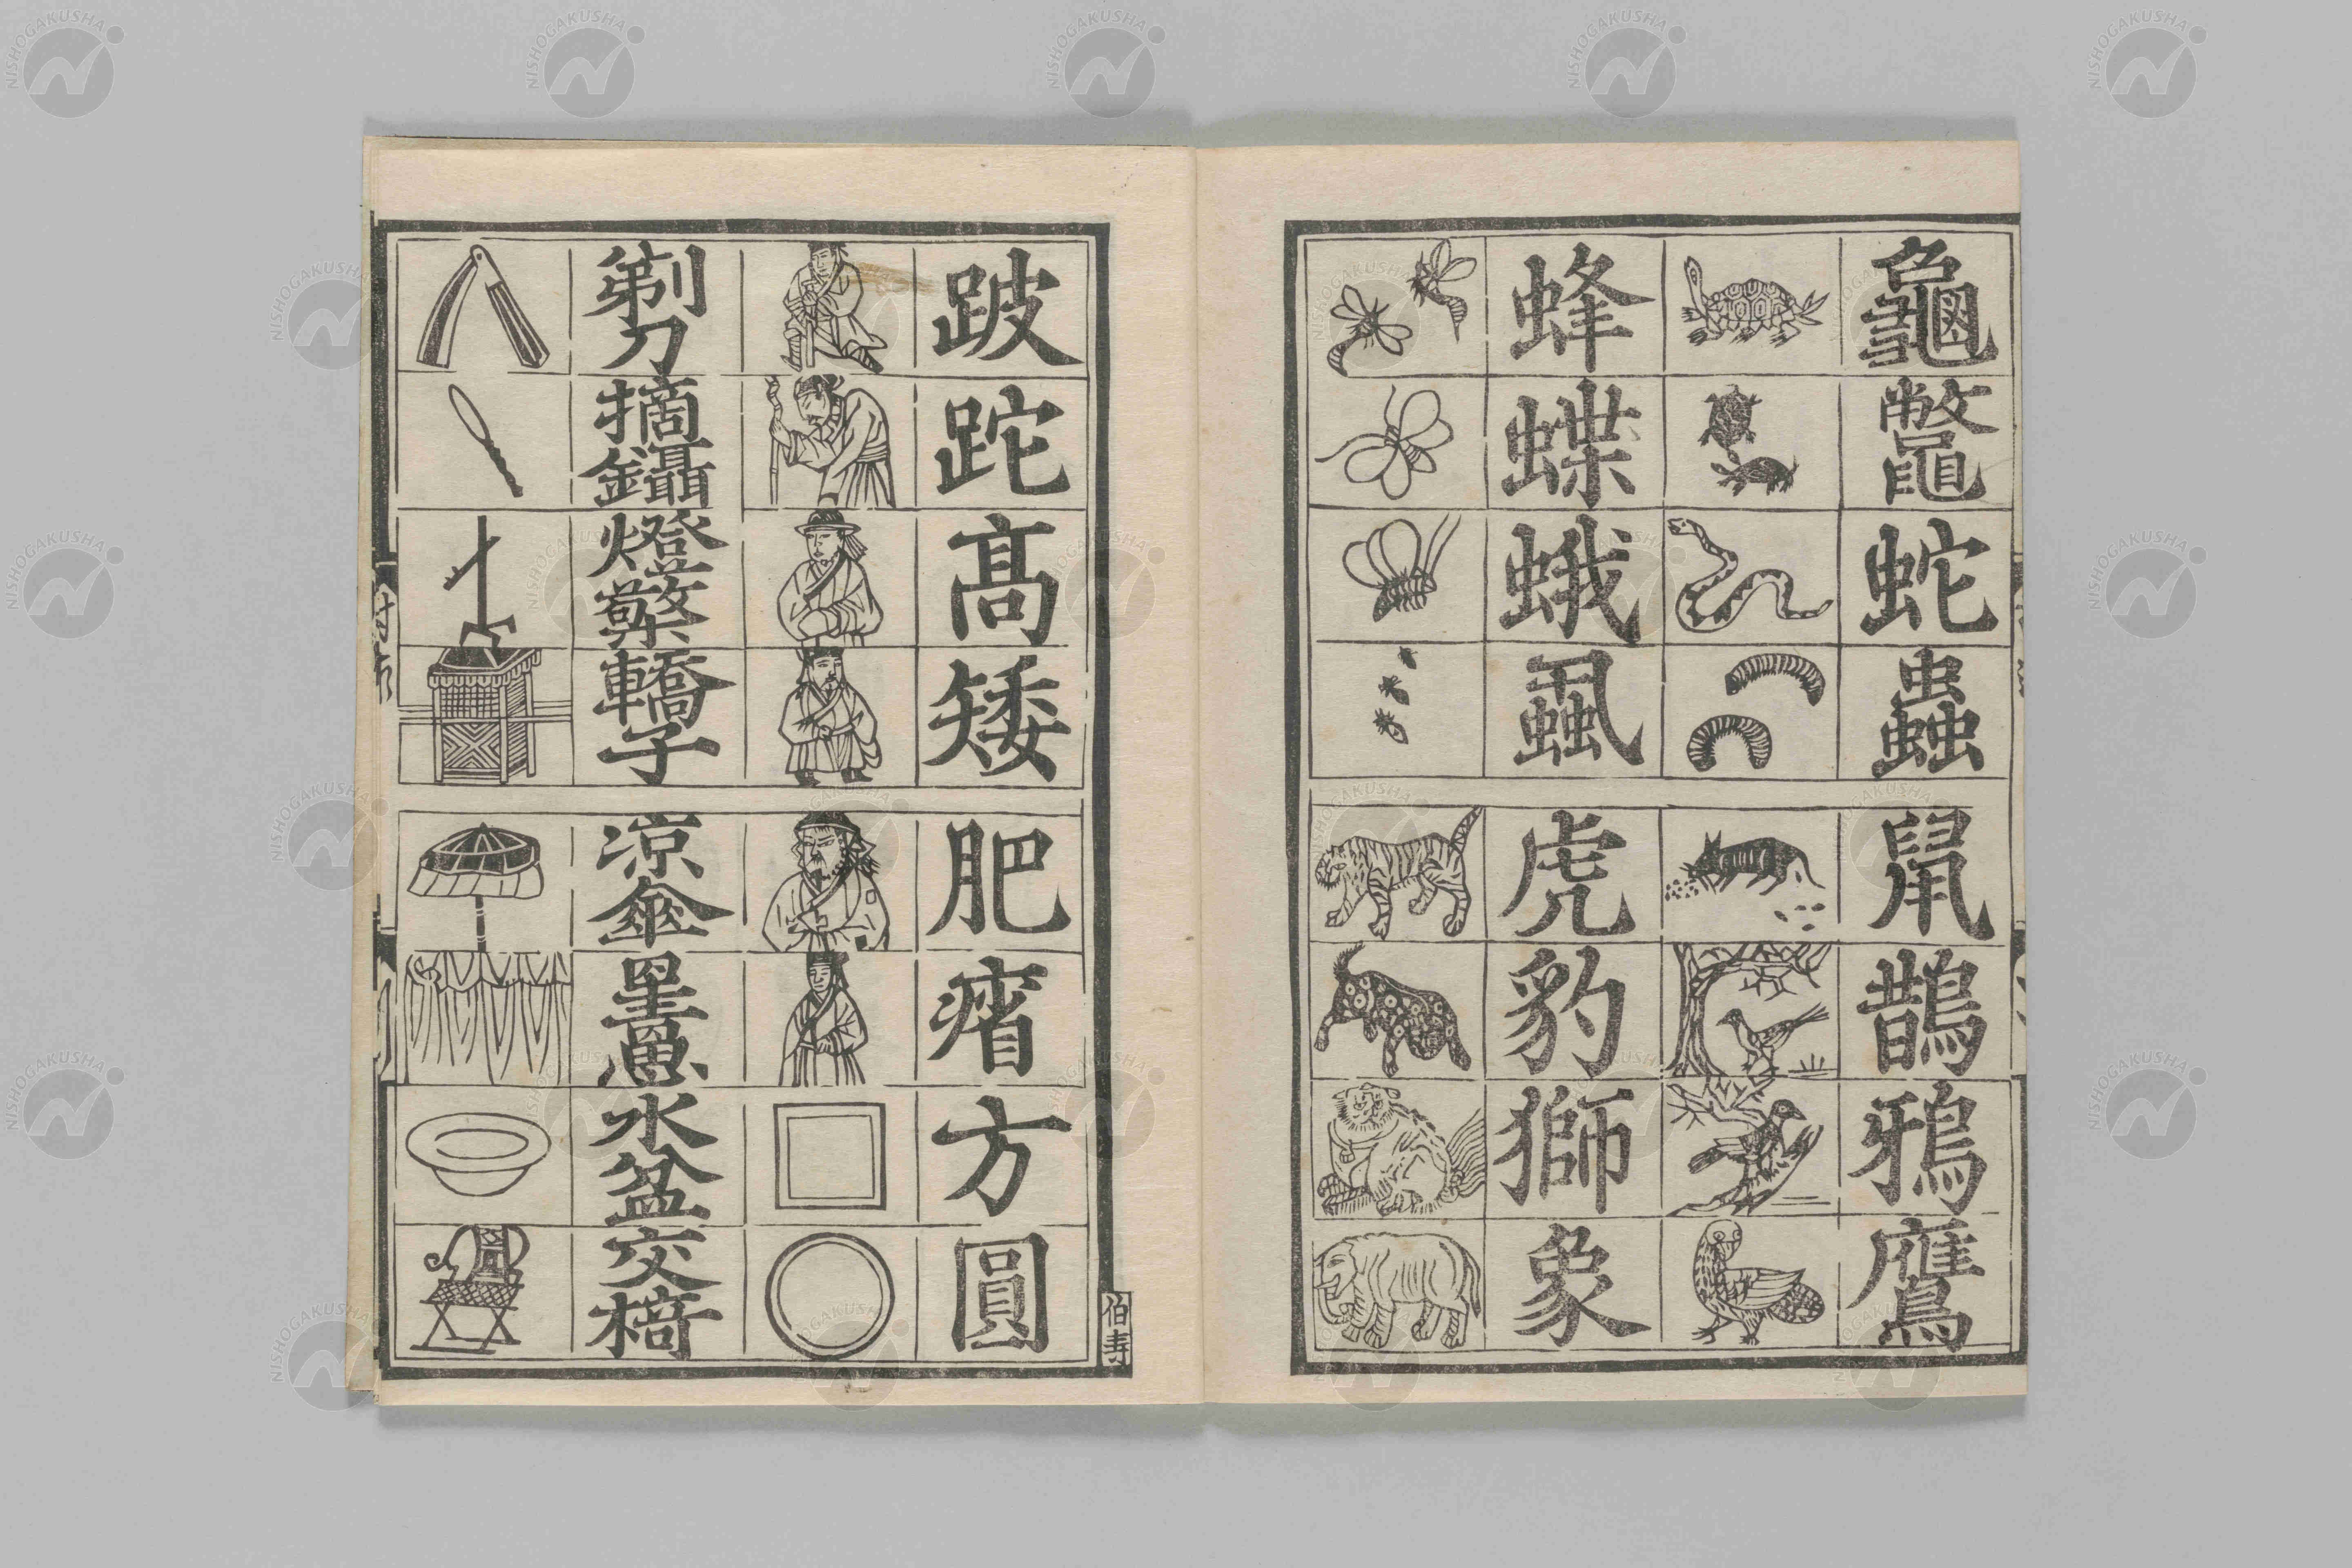 龜鼈蛇蟲
鼠鵲鴉鷹
蜂蝶蛾蝨
虎豹獅象
跛跎髙矮
肥瘠方圓
剃刀
摘鑷
燈檠
轎子
涼傘
水盆
交椅
伯寿
NISHOGAKUSHA